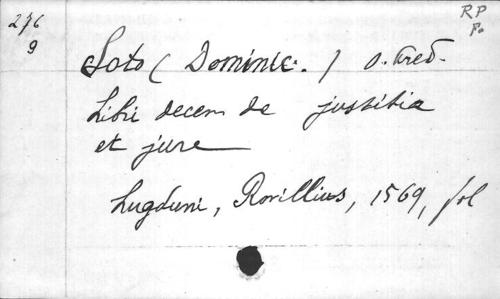 276
9
RP
Po
Soto (Dominic.) O. Pred.
Libri decem de justitia
et jure
Lugduni, Rovillius, 1569, fol